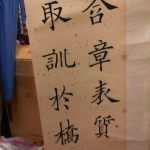 含章表質
取訓於橋